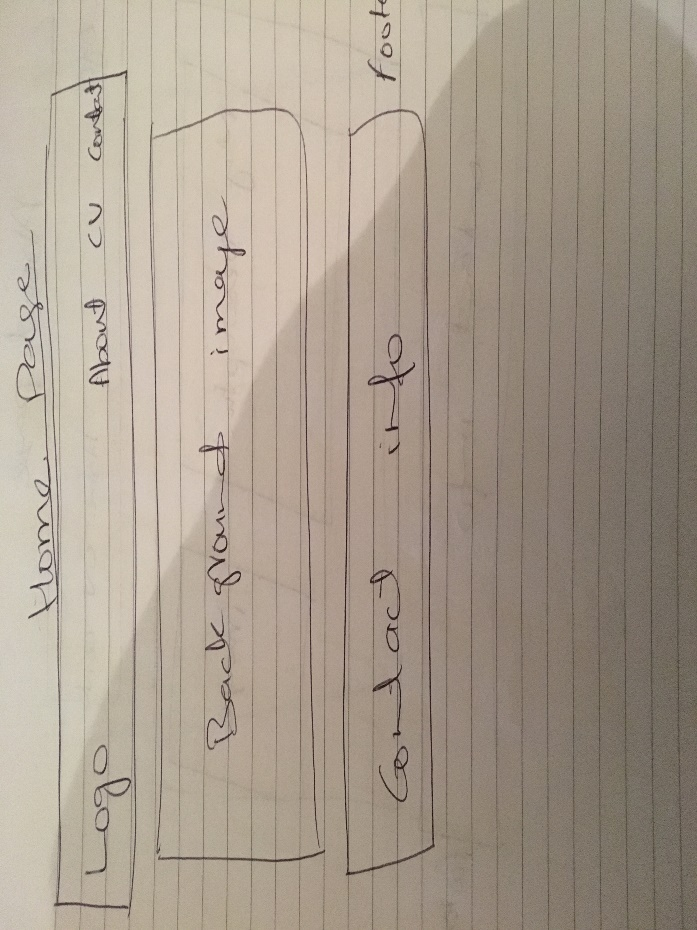 Home Page
Logo About CV Contact
Back ground image
Contact info